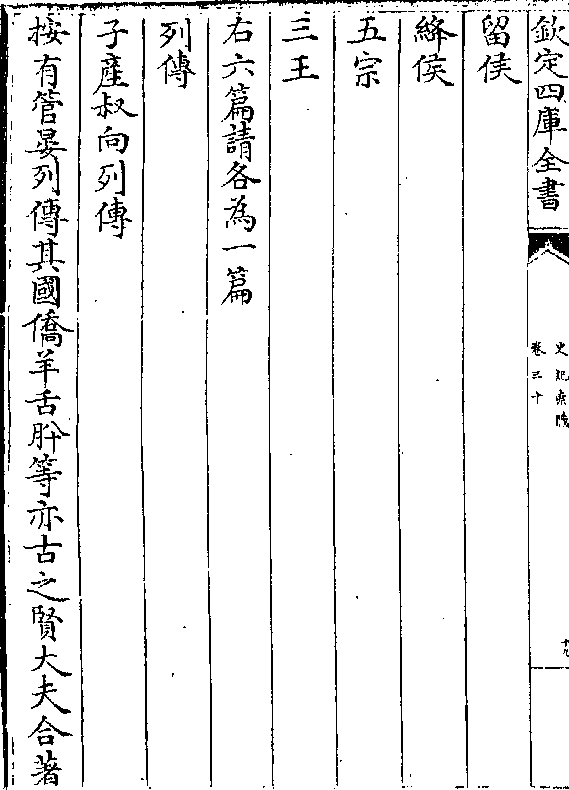 欽定四庫全書
史記索隱
卷三十
十九
留侯
絳侯
五宗
三王
右六篇請各為一篇
列傳
子產叔向列傳
按有管晏列傳其國僑羊舌肸等亦古之賢大夫合著